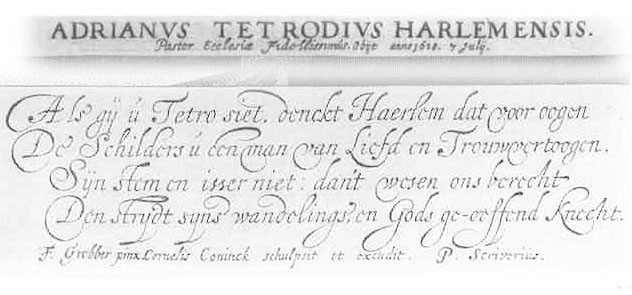 ADRIANVS TETRODIVS HARLEMENSIS.
Pastor Ecclesiæ Fidelissimus. Obijt anno 1618. 7 Julij.
Als gÿ ú Tetro siet, denckt Haerlem dat voor oogen
De Schilders ú een man van Liefd en Trouw vertoogen.
Sÿn stem en isser niet: dan't wesen ons berecht
Den strÿdt sÿns wandelings, en Gods ge-oeffend Knecht.
F. Grebber pinx. Cornelis Coninck schulpsit et excudit. P. Scriverius.